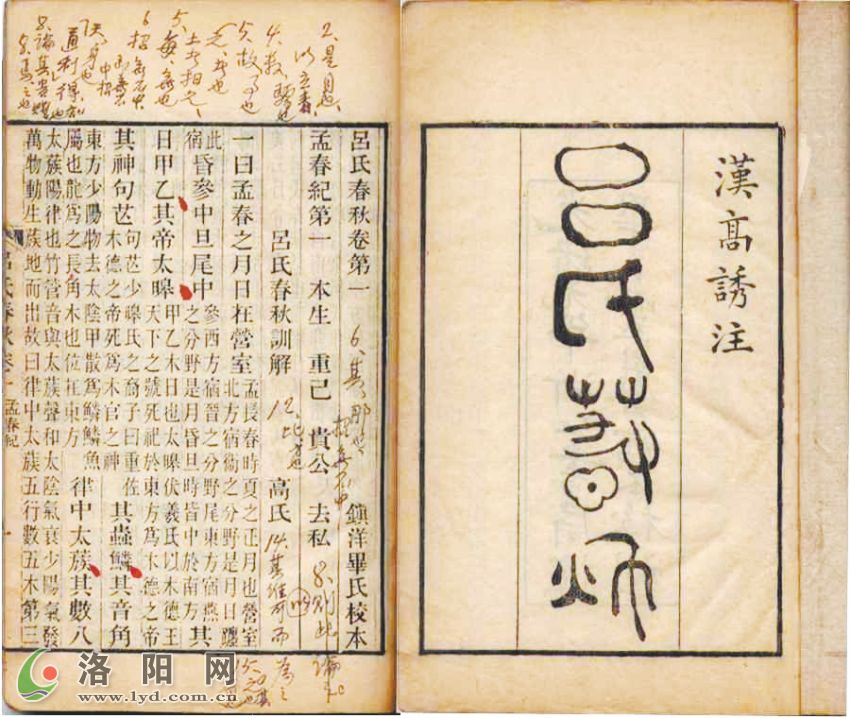 漢高誘注
呂氏春秋
呂氏春秋卷第一 鎮洋畢氏校本
孟春紀第一 本生 重己 貴公 去私
呂氏春秋訓解 高氏
一曰孟春之月日在營室 孟長春時夏之正月也營室
北方宿衞之分野是月日躔
此宿
昏參中旦尾中 參西方宿晉之分野尾東方宿燕
之分野是月昏旦時皆中於南方 其
日甲乙其帝太皞 甲乙木日也太皞伏羲氏以木德王
天下之號死祀於東方為木德之帝
其神句芒 句芒少皞氏之裔子曰重佐
木德之帝死為木官之神 其蟲鱗其音角
東方少陽物去太陰甲散為鱗鱗魚
屬也龍為之長角木也位在東方 律中太蔟其數八
太蔟陽律也竹管音與太蔟聲和太陰氣衰少陽氣發
萬物動生蔟地而出故曰律中太蔟五行數五木第三
呂氏春秋卷一 孟春紀 一
洛阳网
www.lyd.com.cn